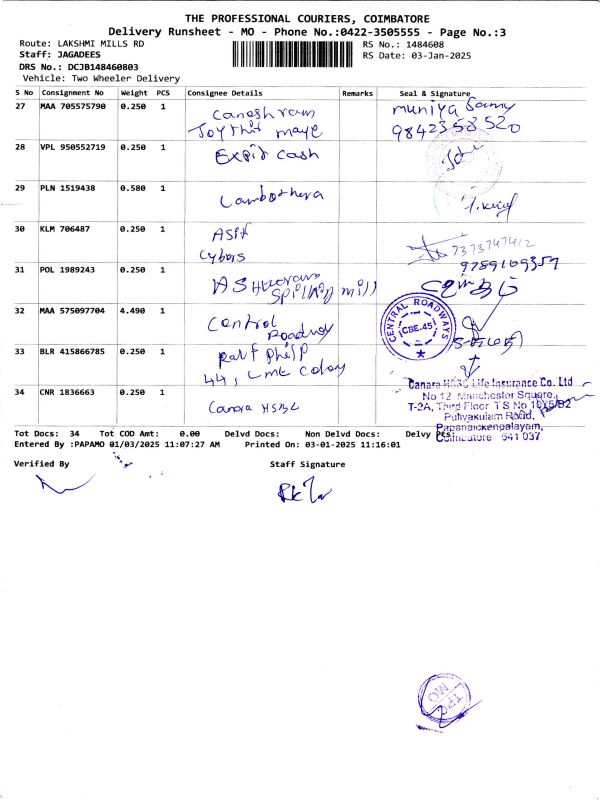 THE PROFESSIONAL COURIERS, COIMBATORE
Delivery Runsheet - MO - Phone No.:0422-3505555 - Page No.:3
Route: LAKSHMI MILLS RD
RS No.: 1484608
Staff: JAGADEES
RS Date: 03-Jan-2025
DRS No.: DCJB148460803
Vehicle: Two Wheeler Delivery
S No Consignment No Weight PCS Consignee Details Remarks Seal & Signature
27 MAA 705575790 0.250 1
muniya Samy
9842358520
28 VPL 950552719 0.250 1 Expit cash
29 PLN 1519438 0.580 1 Lambothera
30 KLM 706487 0.250 1 ASIF
Cybors
7373747412
9789169357
31 POL 1989243 0.250 1 mill
32 MAA 575097704 4.490 1 Central
Roadway
CENTRAL ROADWAYS
CBE.45
33 BLR 415866785 0.250 1
44, LMC Colony
34 CNR 1836663 0.250 1 Canara HSBC
Canara HSBC Life Insurance Co. Ltd
No 12 Manchester Square,
T-2A, Third Floor T S No 10/5/B2
Puliyakulam Road,
Papanaickenpalayam,
Coimbatore 641 037
Tot Docs: 34 Tot COD Amt: 0.00 Delvd Docs: Non Delvd Docs: Delvy Pts:
Entered By :PAPAMO 01/03/2025 11:07:27 AM Printed On: 03-01-2025 11:16:01
Verified By Staff Signature
TPC
MO